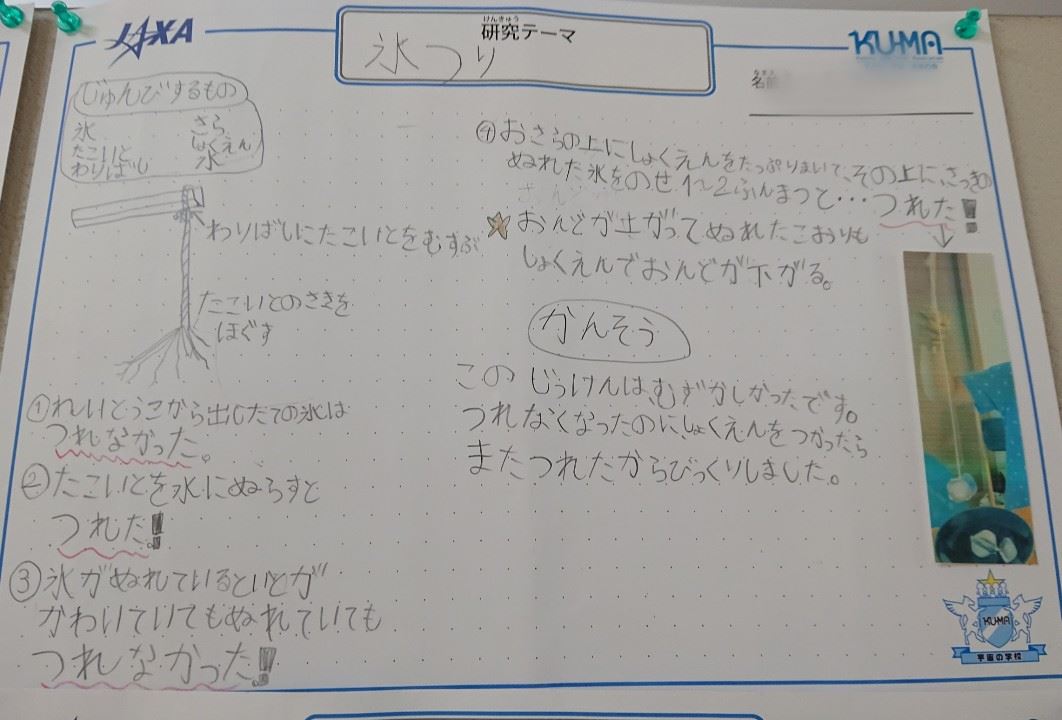 JAXA
けんきゅう
研究テーマ
氷つり
KU-MA
じゅんびするもの
氷
たこいと
わりばし
さら
しょくえん
水
わりばしにたこいとをむすぶ
たこいとのさきを
ほぐす
①れいとうこから出したての氷は
つれなかった。
②たこいとを水にぬらすと
つれた!
③氷がぬれているといとが
かわいていてもぬれていても
つれなかった!
④おさらの上にしょくえんをたっぷりまいて、その上に、さっきの
ぬれた氷をのせ1〜2ふんまつと…つれた!
☆おんどが上がってぬれたこおりも
しょくえんでおんどが下がる。
かんそう
このじっけんは、むずかしかったです。
つれなくなったのに、しょくえんをつかったら
またつれたからびっくりしました。
KU-MA
宇宙の学校